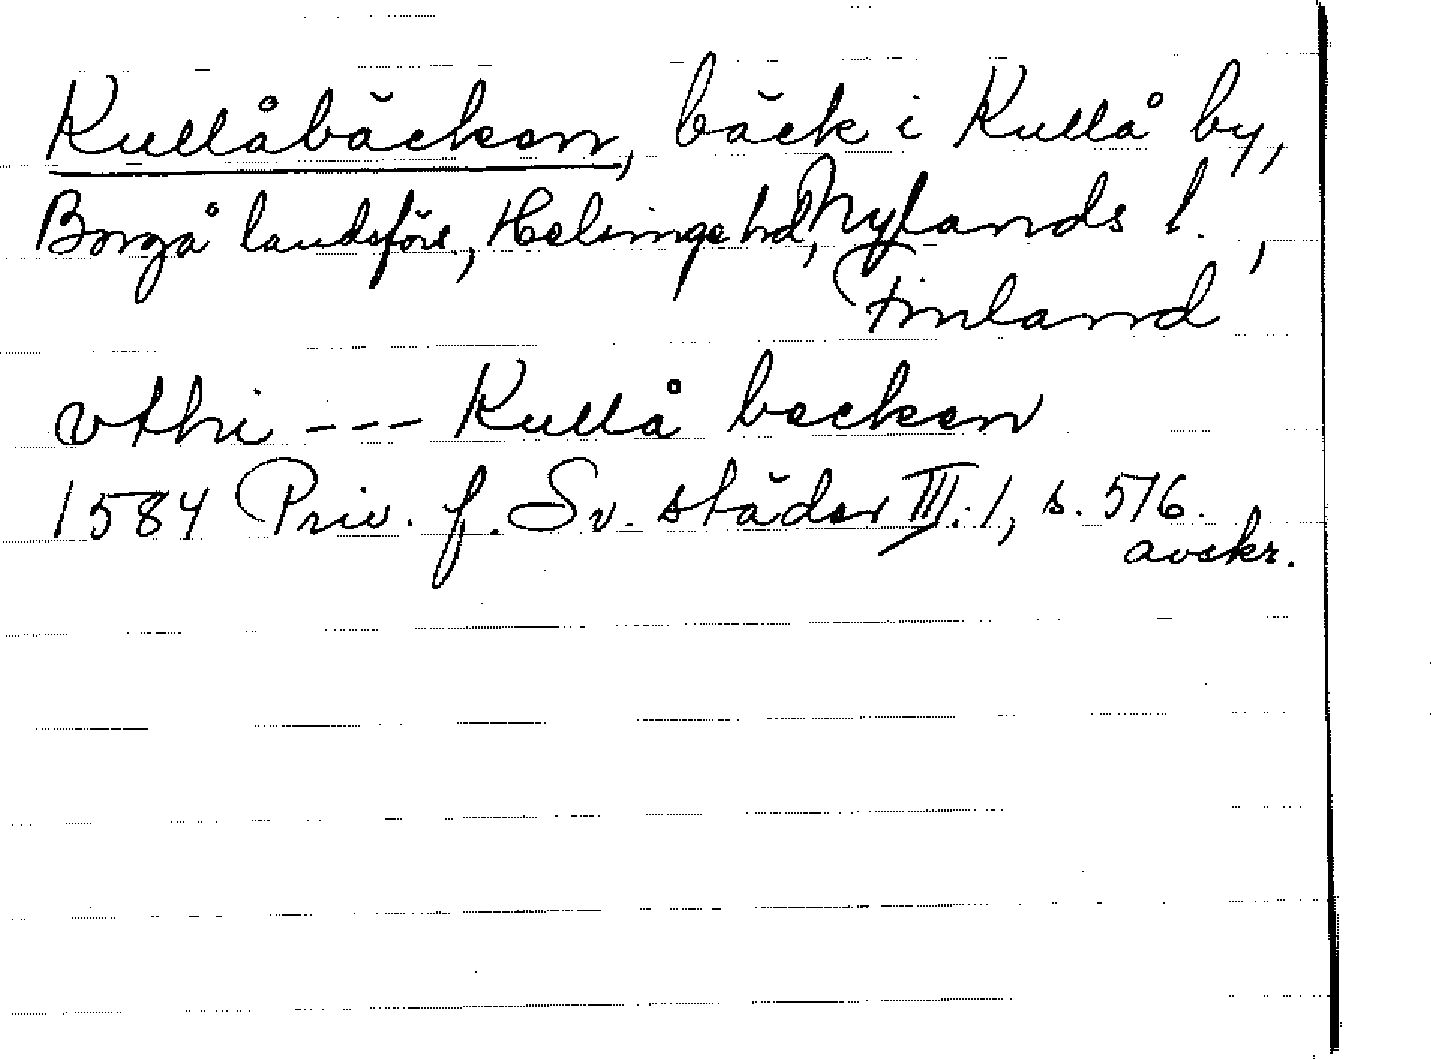 Kullåbäcken, bäck i Kullå by,
Borgå landsförs., Helsinge hd, Nylands l.,
Finland
vthi --- Kullå becken
1584 Priv. f. Sv. städer III:1, s. 576.
avskr.